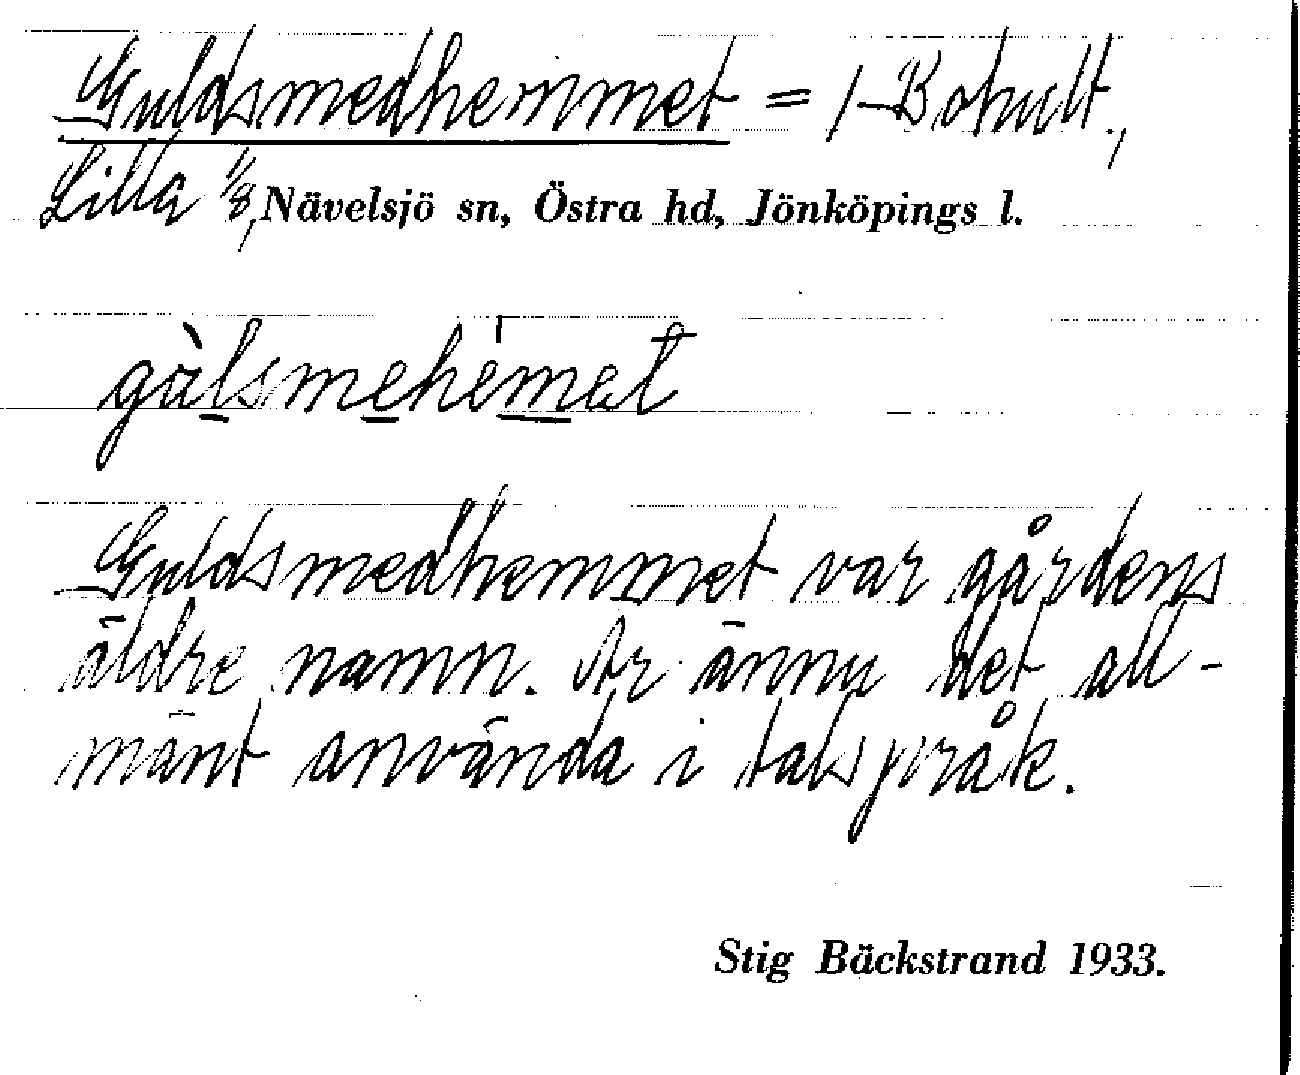 Guldsmedhemmet = /-Bohult.,
Lilla 1/8, Nävelsjö sn, Östra hd, Jönköpings l.
gàlsmehemet
Guldsmedhemmet var gårdens
äldre namn. Är ännu det all-
mänt använda i talspråk.
Stig Bäckstrand 1933.